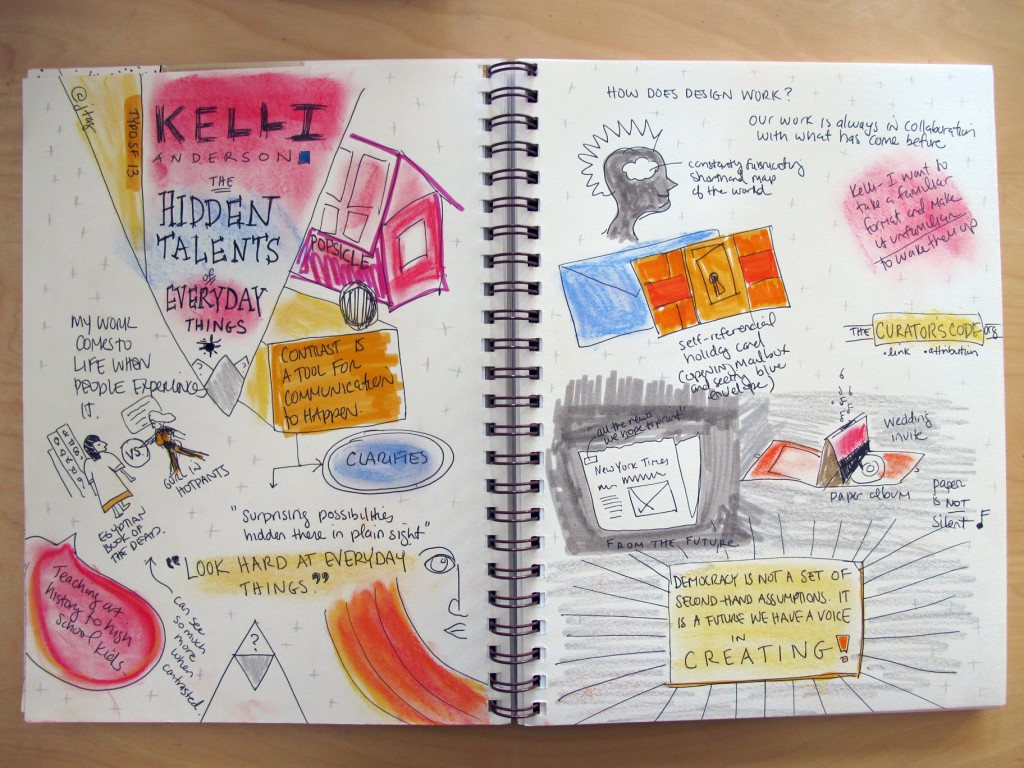 @jtak
TYPO SF 13
KELLI
ANDERSON
THE
HIDDEN
TALENTS
of
EVERYDAY
THINGS
POPSICLE
MY WORK
COMES TO
LIFE WHEN
PEOPLE EXPERIENCE
IT.
CONTRAST IS
A TOOL FOR
COMMUNICATION
to HAPPEN.
CLARIFIES
VS.
GUY IN
HOTPANTS
EGYPTIAN
BOOK OF
THE DEAD.
"Surprising possibilities
hidden there in plain sight"
"LOOK HARD AT EVERYDAY
THINGS."
Teaching art
history to high
school kids.
can see
so much
more
when
contrasted.
?
HOW DOES DESIGN WORK?
OUR WORK IS ALWAYS IN COLLABORATION
WITH WHAT HAS COME BEFORE
constantly fabricating
shorthand map
of the world
Kelli- I want to
take a familiar
format and make
it unfamiliar
to wake them up
self-referential
holiday card
(opening mailbox
and seeing blue
envelope)
THE CURATOR'S CODE.org
• link • attribution
"all the news
we hope to print"
New York Times
FROM THE FUTURE
wedding
invite
paper album
paper
IS NOT
silent
DEMOCRACY IS NOT A SET OF
SECOND-HAND ASSUMPTIONS. IT
IS A FUTURE WE HAVE A VOICE
IN
CREATING!